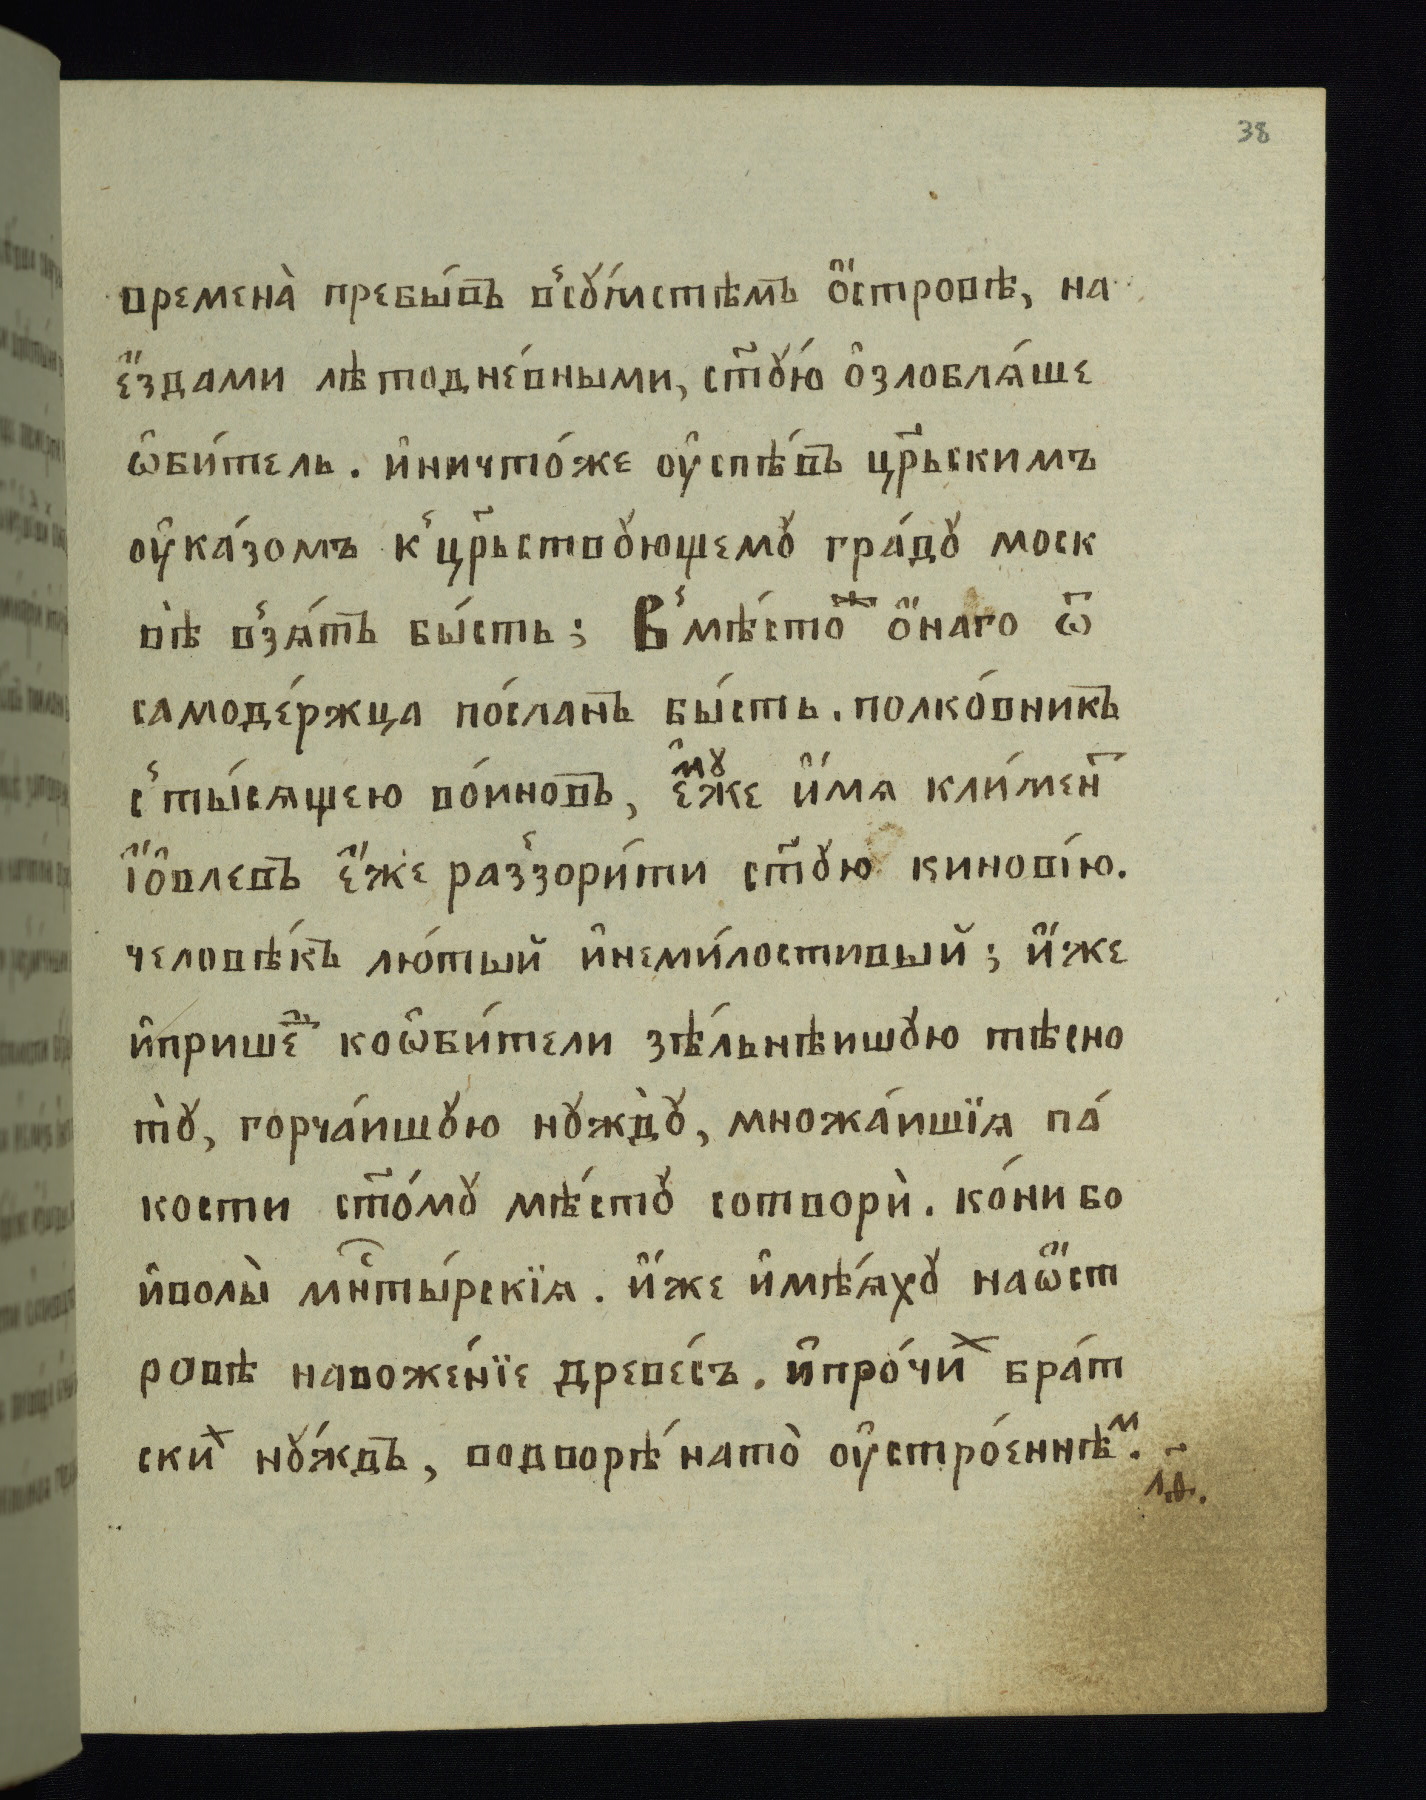 38
времена̀ пребы́въ в̾сꙋ́мстѣмъ ѻ҆́стровѣ, на
є҆́здами лѣтодне́вными, ст҃ꙋ́ю ѻ҆злоблѧ́ше
ѡ҆би́тель. и҆ничто́же ᲂу҆спѣ́въ цр҃ьскимъ
ᲂу҆ка́зомъ к̾ цр҃ьствꙋющемꙋ гра́дꙋ моск
вѣ̀ в̾зѧ́тъ бы́сть; В̾мѣ́стоⷤ ѻ҆́наго ѿ
самоде́ржца по́сланъ бы́сть. полко́вникъ
с̾ты́сѧщею во́иновъ, є҆мꙋ́же и҆́мѧ кли́мен̾
і҆́ѻ҆влевъ є҆́же раз̾зори́ти ст҃ꙋю кинові́ю.
человѣ́къ лю́тый и҆неми́лостивый; и҆́же
и҆прише́ⷣ коѡ҆би́тели зѣ́льнѣишꙋю тѣсно
тꙋ̀, горча́ишꙋю нꙋждꙋ̀, множа́ишїѧ па́
кости ст҃о́мꙋ мѣ́стꙋ сотворѝ. ко́ни бо
и҆волы̀ мнⷭ҇ты́рскїѧ. и҆́же и҆мѣ́ѧхꙋ наѡ҆́ст
ровѣ навоже́нїе древе́съ. и҆про́чиⷯ бра́т
скиⷯ нꙋ́ждъ, водворѣ́ нато̀ ᲂу҆стро́еннѣⷨ.
л҃ѳ.